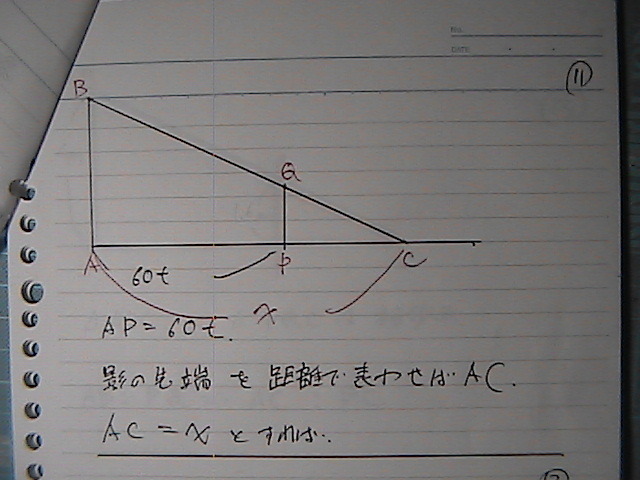 No.
DATE
⑪
B
Q
A
P
C
60t
x
AP=60t.
影の先端を距離で表わせばAC.
AC=xとすれば..